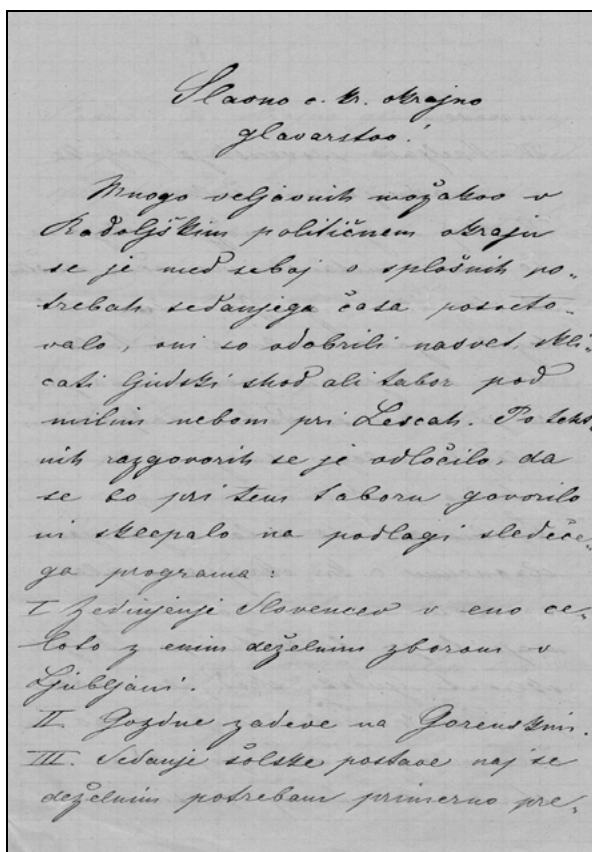 Slavno c. kr. okrajno
glavarstvo!
Mnogo veljavnih možakov v
Radoljškim političnem okraju
se je med seboj o splošnih po-
trebah sedanjega časa posveto-
valo, oni so odobrili nasvet, skli-
cati ljudski shod ali tabor pod
milim nebom pri Lescah. Po
nih razgovorih se je odločilo, da
se bo pri tem taboru govorilo
ni sklepalo na podlagi sledeče-
ga programa:
I Zedinjenje Slovencev v eno ce-
loto z enim deželnim zborom v
Ljubljani.
II. Gozdne zadeve na Gorenskim.
III. Sedanje šolske postave naj se
deželnim potrebam primerno pre-